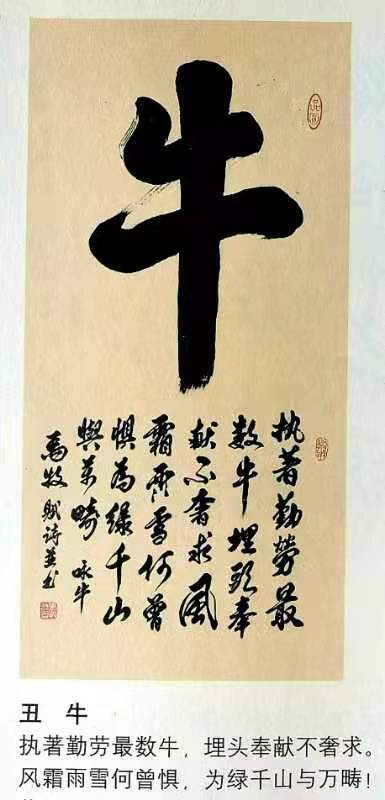 牛
执著勤勞最
数牛埋头奉
献不奢求風
霜雨雪何曾
惧為绿千山
與萬疇 咏牛
馬牧赋诗並书
丑 牛
执著勤劳最数牛，埋头奉献不奢求。
风霜雨雪何曾惧，为绿千山与万畴！